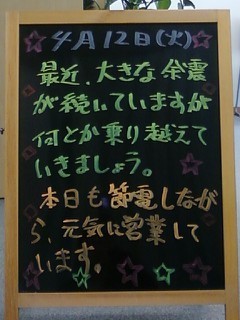 4月12日(火)
最近、大きな余震
が続いていますが
何とか乗り越えて
いきましょう。
本日も節電しなが
ら、元気に営業して
います。